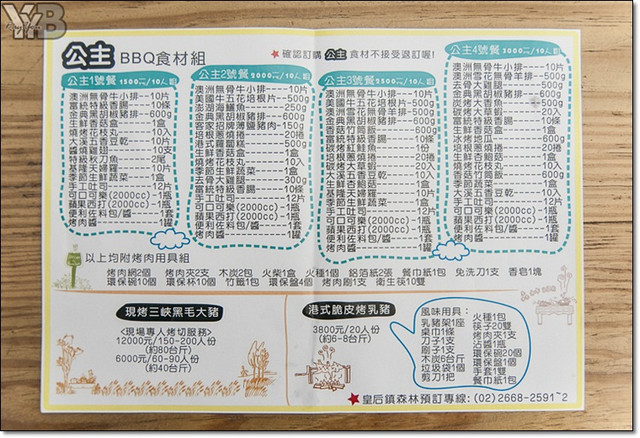 公主 BBQ食材組
★確認訂購 公主 食材不接受退訂喔!
公主1號餐 1500元/10人份
澳洲無骨牛小排---10片
富統特級香腸---10條
金典黑胡椒豬排---600g
生鮮香菇盒---1盒
燒烤花枝丸---10入
大溪五香豆乾---10入
醬燒雞翅---10支
特級秋刀魚---2尾
基隆天婦羅---10片
季節生鮮蔬菜---1盒
手工吐司---12片
可口可樂(2000cc)---1瓶
蘋果西打(2000cc)---1瓶
便利佐料包/醬---1套
烤肉醬---1罐
公主2號餐 2000元/10人份
澳洲無骨牛小排---10片
美國牛五花培根片---500g
澎湖海鱺魚---250g
金典黑胡椒豬排---600g
客家招牌燒薄鹽豬肉---150g
培根蔥燒捲---20捲
港式蘿蔔糕---500g
生鮮香菇盒---1盒
去骨大雞腿---300g
富統特級香腸---10條
基隆天婦羅---10片
季節生鮮蔬菜---1盒
手工吐司---12片
可口可樂(2000cc)---1瓶
蘋果西打(2000cc)---1瓶
便利佐料包/醬---1套
烤肉醬---1罐
公主3號餐 2500元/10人份
澳洲無骨牛小排---10片
美國牛五花培根片---500g
澳洲雪花無骨羊排---500g
金典黑胡椒豬排---600g
香菇竹筒飯---600g
碳烤紅魽鮭---1份
培根蔥燒捲---20捲
碳烤大草蝦---20入
大溪五香豆乾---10入
生鮮香菇菇---1盒
基隆天婦羅---10片
季節生鮮蔬菜---1盒
手工吐司---12片
可口可樂(2000cc)---1瓶
蘋果西打(2000cc)---1瓶
便利佐料包/醬---1套
烤肉醬---1罐
公主4號餐 3000元/10人份
澳洲無骨牛小排---10片
澳洲雪花無骨羊排---500g
去骨大雞腿---500g
金典黑胡椒豬排---600g
炭烤大香魚---500g
碳烤大草蝦---20入
水果絲瓜---600g
香菇竹筒飯---600g
生鮮香菇菇---1盒
燒烤花枝丸---10入
大溪五香豆乾---10入
富統特級香腸---10條
季節蔬菜---1盒
手工吐司---12片
可口可樂(2000cc)---1瓶
蘋果西打(2000cc)---1瓶
便利佐料包/醬---1套
烤肉醬---1罐
以上均附烤肉用具組
烤肉網2個 烤肉夾2支 木炭2包 火柴1盒 火種1個 鋁箔紙2張 餐巾紙1包 免洗刀1支 香皂1塊
環保碗10個 環保杯10個 竹籤1包 環保盤4個 烤肉刷1支 衛生筷10雙
現烤三峽黑毛大豬
<現場專人烤切服務>
12000元/150-200人份
(約80台斤)
6000元/60-90人份
(約40台斤)
港式脆皮烤乳豬
3800元/20人份
(約6-8台斤)
風味用具:
乳豬架1座
桌巾1條
刀子1支
刷子1支
木炭6台斤
垃圾袋1個
剪刀1把
火種1包
筷子20雙
烤肉夾1支
沾醬1瓶
環保碗20個
環保盤1個
手套1雙
餐巾紙1包
★皇后鎮森林預訂專線:(02)2668-2591~2